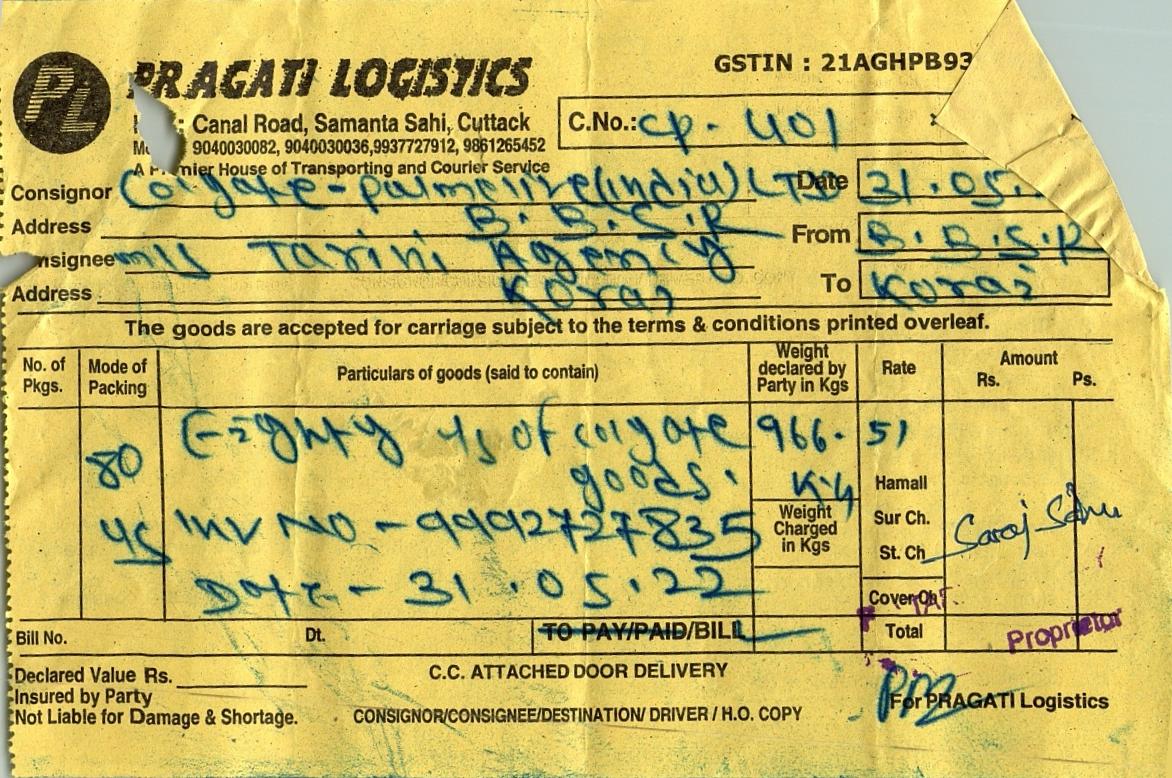 PL
PRAGATI LOGISTICS
GSTIN : 21AGHPB93
Canal Road, Samanta Sahi, Cuttack
9040030082, 9040030036,9937727912, 9861265452
C.No.: CP - 401
A Premier House of Transporting and Courier Service
Consignor Colgate - palmolive (india) LTD Date 31.05.
Address B.B.S.R From B.B.S.R
nsignee m/s Tarini Agency
Address Korai To Korai
The goods are accepted for carriage subject to the terms & conditions printed overleaf.
No. of Pkgs. Mode of Packing Particulars of goods (said to contain) Weight declared by Party in Kgs Rate Amount Rs. Ps.
80 Eighty of colgate 966. 51
goods. K.g Hamall
INV NO - 9992727835 Weight Charged in Kgs Sur Ch.
St. Ch Saroj Sahu
Date - 31.05.22 Cover Ch
Bill No. Dt. TO PAY/PAID/BILL Total Proprietor
Declared Value Rs. C.C. ATTACHED DOOR DELIVERY
Insured by Party
For PRAGATI Logistics
Not Liable for Damage & Shortage. CONSIGNOR/CONSIGNEE/DESTINATION/ DRIVER / H.O. COPY